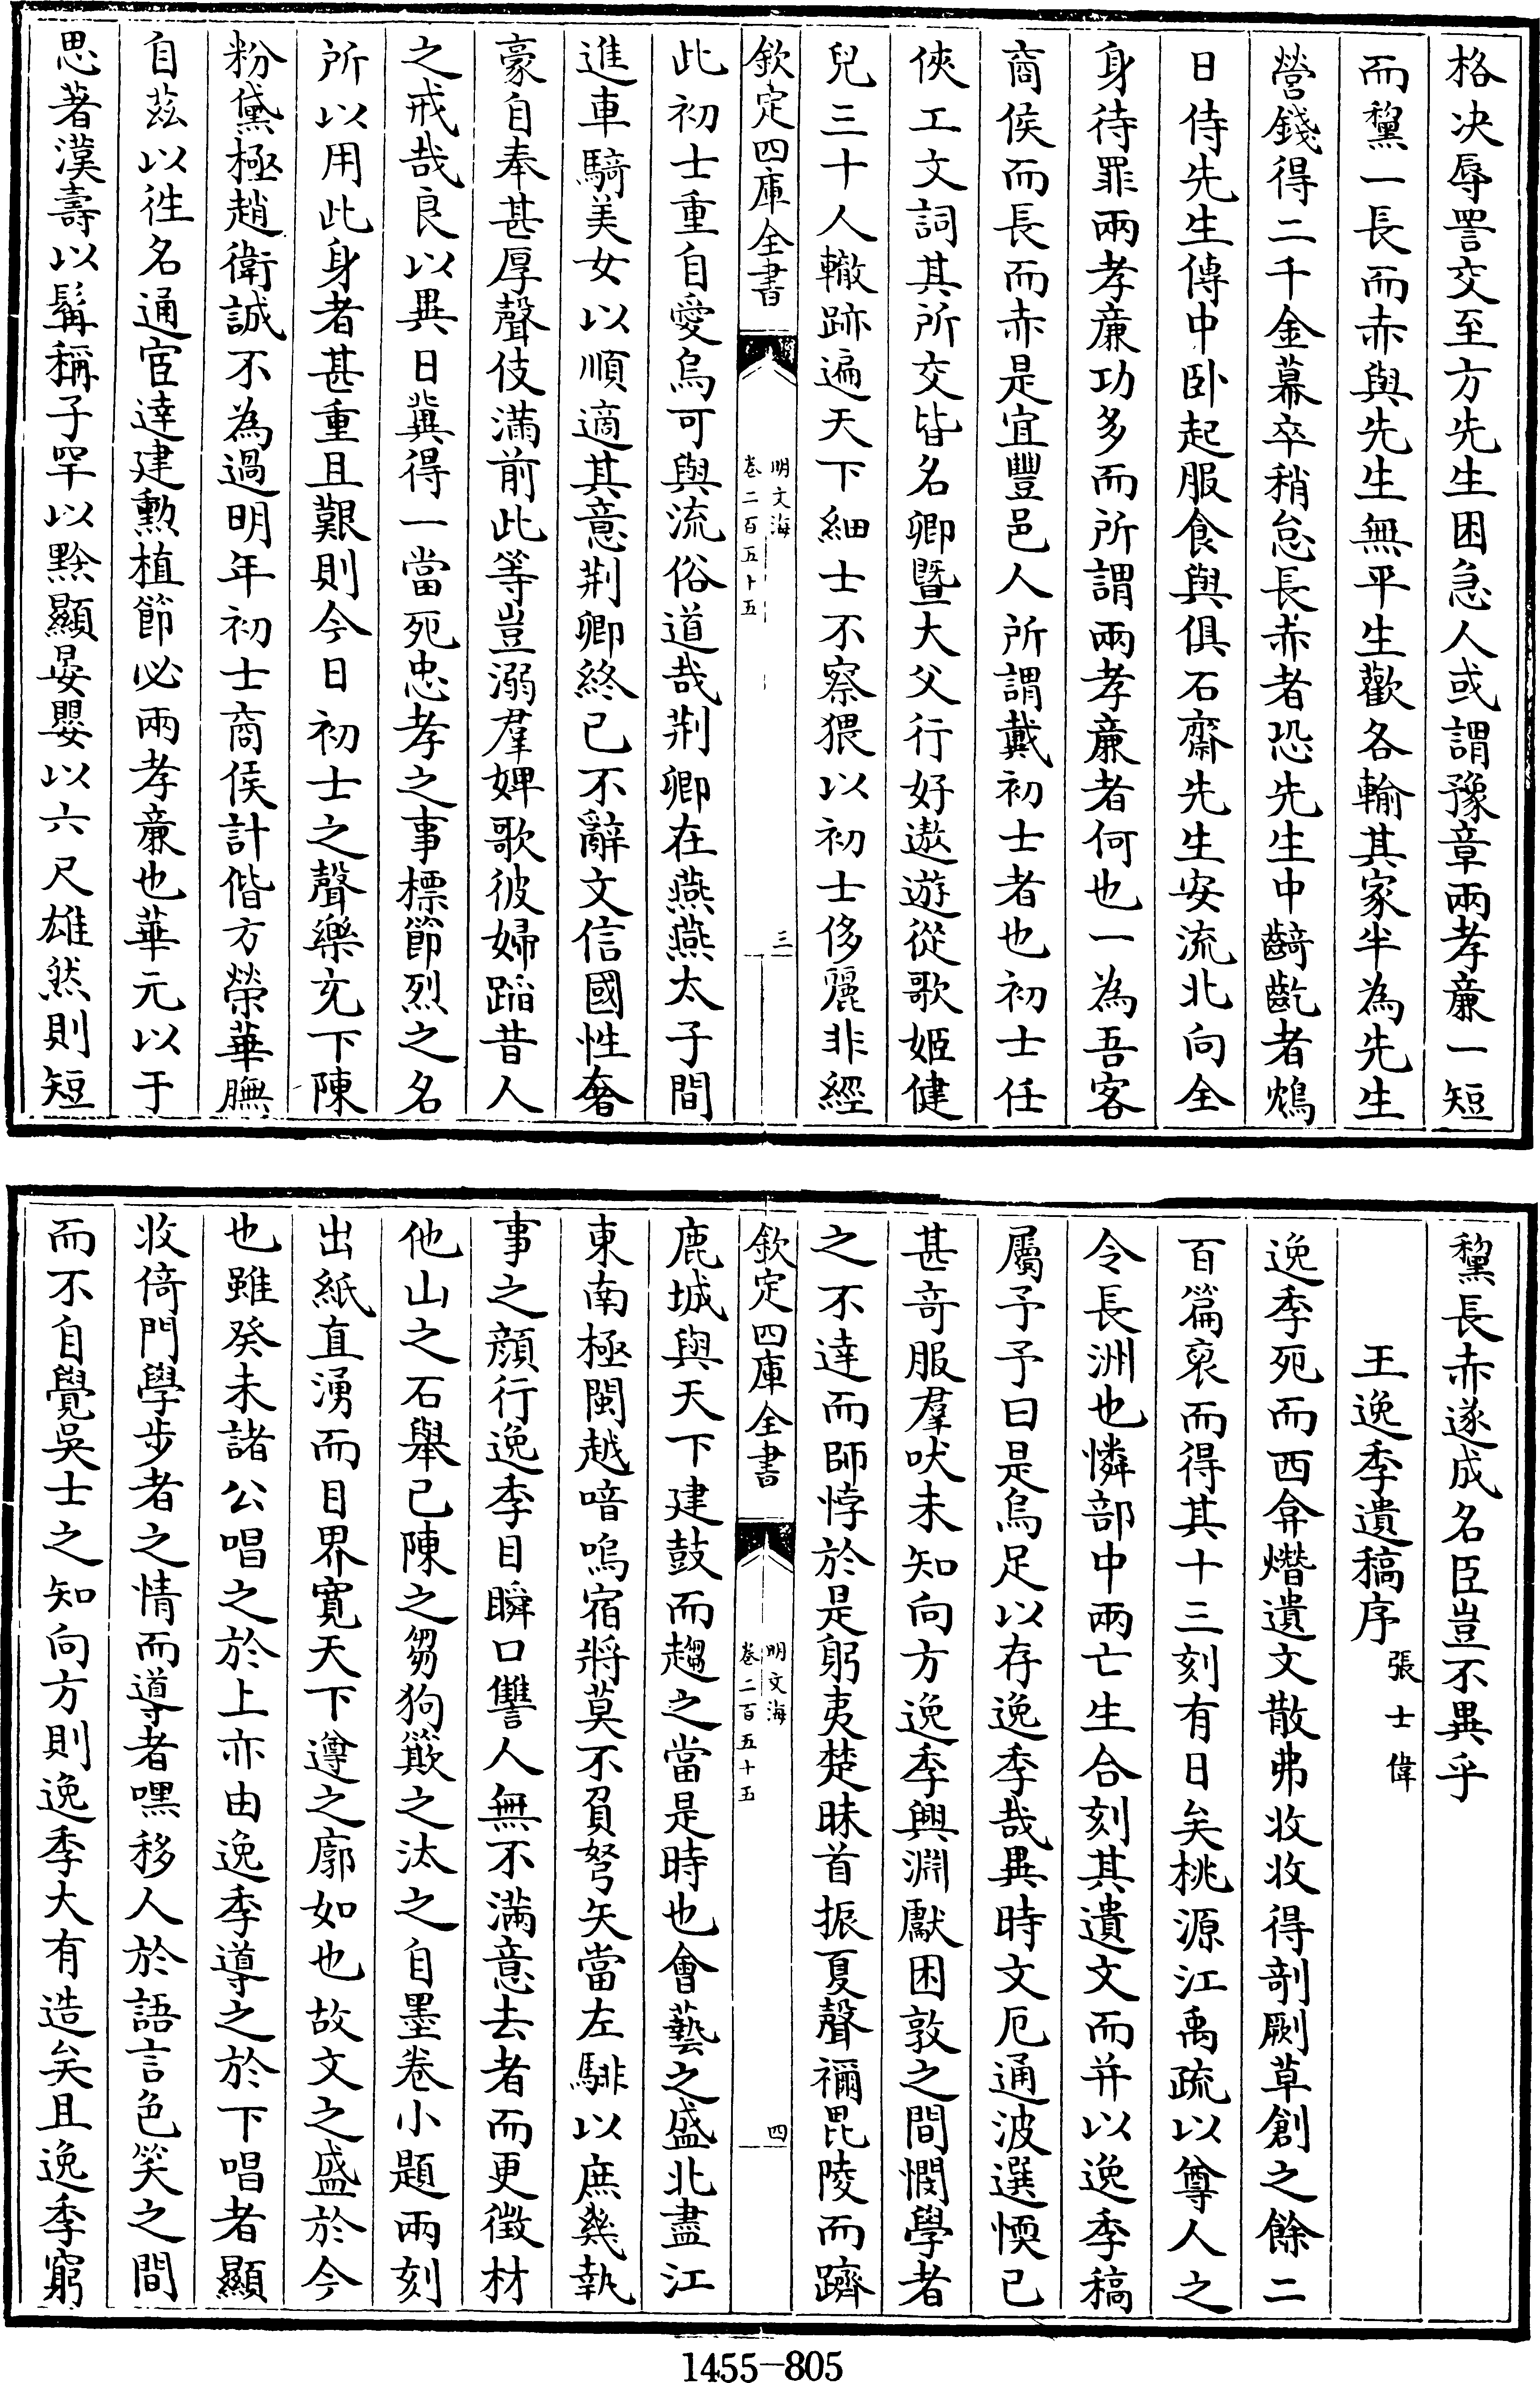 格决辱詈交至方先生困急人或謂豫章兩孝亷一短
而黧一長而赤與先生無平生歡各輸其家半為先生
營錢得二千金幕卒稍怠長赤者恐先生中齮齕者鴆
日侍先生傳中卧起服食與俱石齋先生安流北向全
身待罪兩孝亷功多而所謂兩孝亷者何也一為吾客
商侯而長而赤是宜豐邑人所謂戴初士者也初士任
俠工文詞其所交皆名卿暨大父行好遨遊從歌姬健
兒三十人轍跡遍天下細士不察猥以初士侈麗非經
欽定四庫全書
明文海
卷二百五十五
三
此初士重自愛烏可與流俗道哉荆卿在燕燕太子間
進車騎美女以順適其意荆卿終已不辭文信國性奢
豪自奉甚厚聲伎滿前此等豈溺羣婢歌彼婦蹈昔人
之戒哉良以異日冀得一當死忠孝之事標節烈之名
所以用此身者甚重且艱則今日初士之聲樂充下陳
粉黛極趙衛誠不為過明年初士商侯計偕方榮華膴
自茲以徃名通宦達建勲植節必兩孝亷也華元以于
思著漢壽以髯稱子罕以黥顯晏嬰以六尺雄然則短
黧長赤遂成名臣豈不異乎
王逸季遺稿序
張士偉
逸季死而西弇熸遺文散弗收收得剞劂草創之餘二
百篇裒而得其十三刻有日矣桃源江禹疏以尊人之
令長洲也憐部中兩亡生合刻其遺文而并以逸季稿
屬予予曰是烏足以存逸季哉異時文厄通波選愞已
甚奇服羣吠未知向方逸季興淵獻困敦之間憫學者
之不達而師悖於是躬夷楚昧首振夏聲禰毘陵而躋
欽定四庫全書
明文海
卷二百五十五
四
鹿城與天下建鼓而趨之當是時也會藝之盛北盡江
東南極閩越喑嗚宿將莫不負弩矢當左騑以庶幾執
事之顔行逸季目瞬口讐人無不滿意去者而更徵材
他山之石舉已陳之芻狗簸之汰之自墨卷小題兩刻
出紙直湧而目界寬天下遵之廓如也故文之盛於今
也雖癸未諸公唱之於上亦由逸季導之於下唱者顯
收倚門學步者之情而導者嘿移人於語言色笑之間
而不自覺吳士之知向方則逸季大有造矣且逸季窮
1455—805